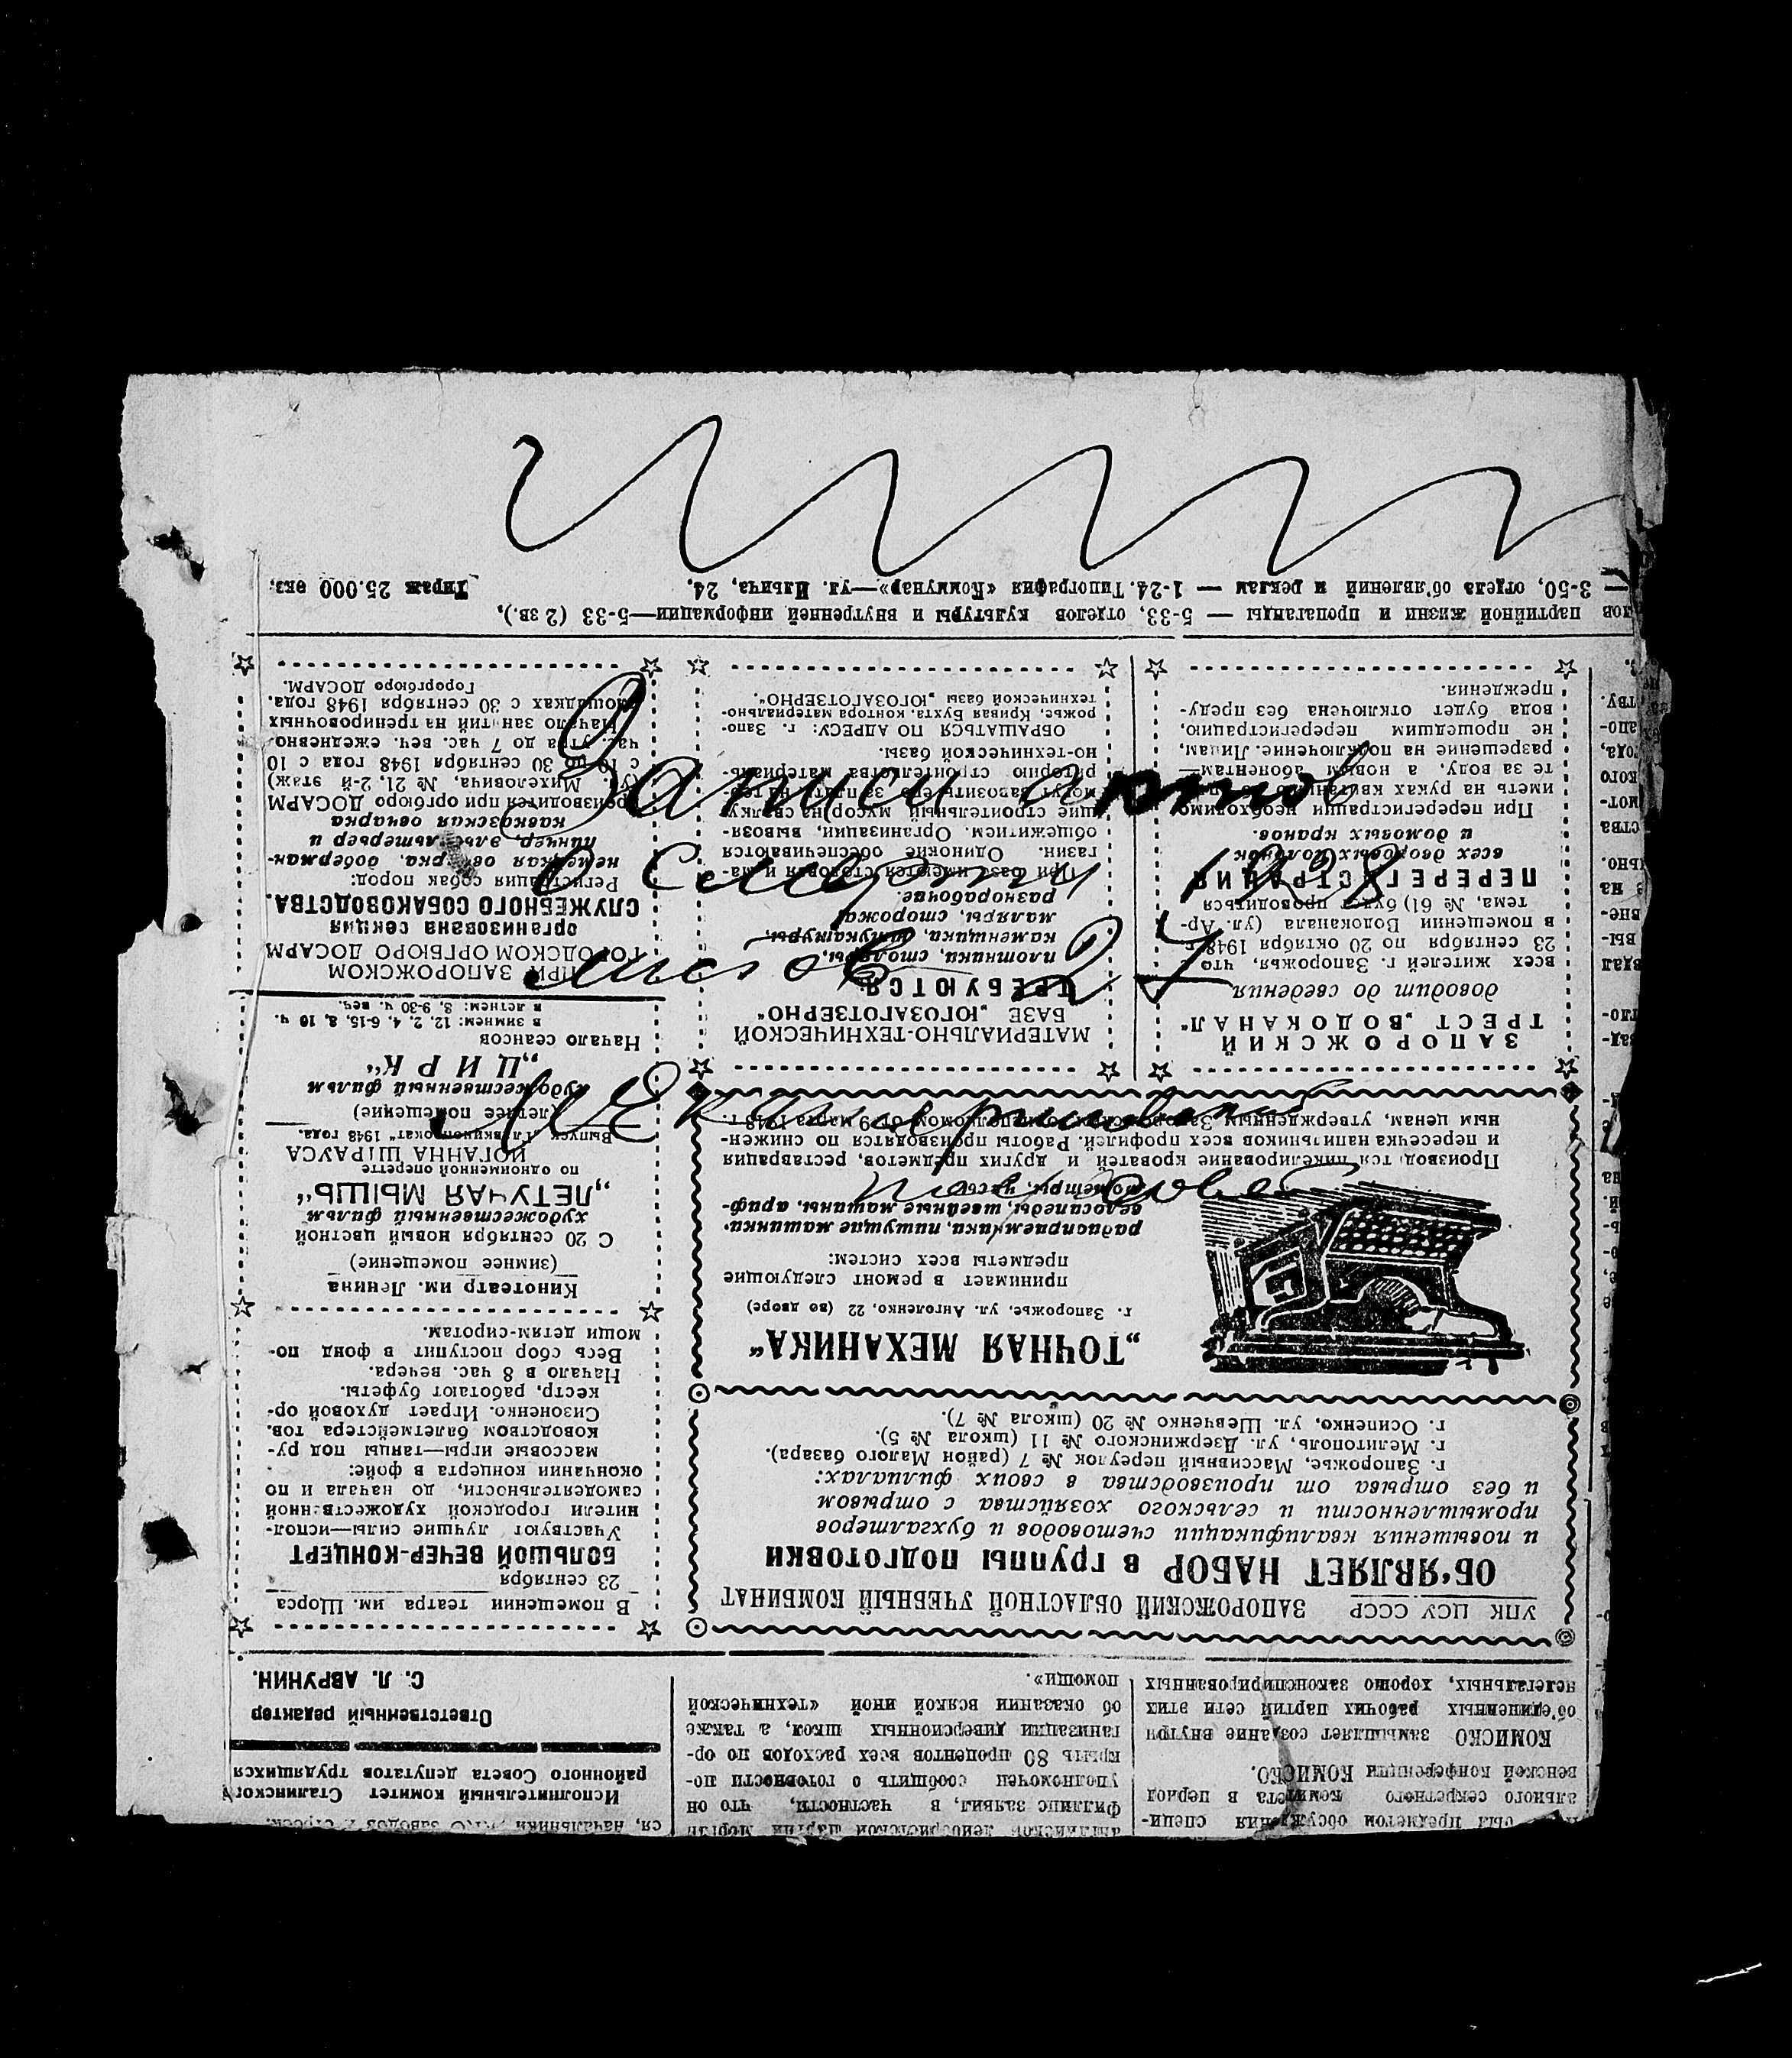 Записи актов
о смерти 1922
листов 27
партийной жизни и пропаганды — 5-33, отделов культуры и внутренней информации—5-33 (2 зв.),
— 3-50, отдела об'явлений и реклам — 1-24. Типография «Коммунар»—ул. Ильича, 24. Тираж 25.000 экз.
ЗАПОРОЖСКИЙ
ТРЕСТ „ВОДОКАНАЛ"
доводит до сведения
всех жителей г. Запорожья, что с
23 сентября по 20 октября 1948 г.
в помещении Водоканала (ул. Ар-
тема, № 61) будет проводиться
ПЕРЕРЕГИСТРАЦИЯ
всех дворовых колонок
и домовых кранов.
При перерегистрации необходимо
иметь на руках
те за воду, а новым абонентам—
разрешение на подключение. Лицам,
не прошедшим перерегистрацию,
вода будет отключена без преду-
преждения.
МАТЕРИАЛЬНО-ТЕХНИЧЕСКОЙ
БАЗЕ „ЮГОЗАГОТЗЕРНО"
ТРЕБУЮТСЯ
плотники, столяры,
каменщики, штукатуры,
маляры, сторожа,
разнорабочие.
При базе имеются столовая и ма-
газин. Одинокие обеспечиваются
общежитием. Организации, вывозя-
щие строительный мусор на свалку,
могут завозить его за плату на тер-
риторию строительства материаль-
но-технической базы.
ОБРАЩАТЬСЯ ПО АДРЕСУ: г. Запо-
рожье, Кривая Бухта, контора материально-
технической базы „ЮГОЗАГОТЗЕРНО".
ПРИ ЗАПОРОЖСКОМ
ГОРОДСКОМ ОРГБЮРО ДОСАРМ
организована секция
СЛУЖЕБНОГО СОБАКОВОДСТВА.
Регистрация собак пород:
немецкая овчарка, доберман-
пинчер, эльдельтерьер и
кавказская овчарка
производится при оргбюро ДОСАРМ
(ул. Михеловича, № 21, 2-й этаж)
с 16 по 30 сентября 1948 года с 10
час. утра до 7 час. веч. ежедневно.
Начало занятий на тренировочных
площадках с 30 сентября 1948 года.
Горогбюро ДОСАРМ.
„ТОЧНАЯ МЕХАНИКА"
г. Запорожье, ул. Анголенко, 22 (во дворе)
принимает в ремонт следующие
предметы всех систем:
радиоприемники, пишущие машинки,
велосипеды, швейные машины, ариф-
мометры, часы.
Производится никелирование кроватей и других предметов, реставрация
и пересечка напильников всех профилей. Работы производятся по снижен-
ным ценам, утвержденным 9 марта 1948 г.
УПК ЦСУ СССР ЗАПОРОЖСКИЙ ОБЛАСТНОЙ УЧЕБНЫЙ КОМБИНАТ
ОБ'ЯВЛЯЕТ НАБОР в группы подготовки
и повышения квалификации счетоводов и бухгалтеров
промышленности и сельского хозяйства с отрывом
и без отрыва от производства в своих филиалах:
г. Запорожье, Массивный переулок № 7 (район Малого базара).
г. Мелитополь, ул. Дзержинского № 11 (школа № 5).
г. Осипенко, ул. Шевченко № 20 (школа № 7).
В помещении театра им. Щорса
23 сентября
БОЛЬШОЙ ВЕЧЕР-КОНЦЕРТ
Участвуют лучшие силы—испол-
нители городской художественной
самодеятельности, до начала и по
окончании концерта в фойе:
массовые игры—танцы под ру-
ководством балетмейстера тов.
Сизоненко. Играет духовой ор-
кестр, работают буфеты.
Начало в 8 час. вечера.
Весь сбор поступит в фонд по-
мощи детям-сиротам.
Кинотеатр им. Ленина
(зимнее помещение)
С 20 сентября новый цветной
художественный фильм
„ЛЕТУЧАЯ МЫШЬ"
по одноименной оперетте
ИОГАННА ШТРАУСА
Выпуск „Главкинопрокат" 1948 года.
(летнее помещение)
художественный фильм
„ЦИРК"
Начало сеансов
в зимнем: 12, 2, 4, 6-15, 8, 10 ч.
в летнем: 8, 9-30 ч. веч.
был предметом обсуждения специ-
ального секретного комитета в период
венской конференции КОМИСКО.
КОМИСКО замышляет создание внутри
об'единенных рабочих партий сети этих
нелегальных, хорошо законспирированных
английской лейбористской партии Морган
Филипс заявил, в частности, что он
уполномочен сообщить о готовности по-
крыть 80 процентов всех расходов по ор-
ганизации диверсионных школ, а также
об оказании всякой иной «технической
помощи».
Исполнительный комитет Сталинского
районного Совета депутатов трудящихся
Ответственный редактор
С. Л. АВРУНИН.